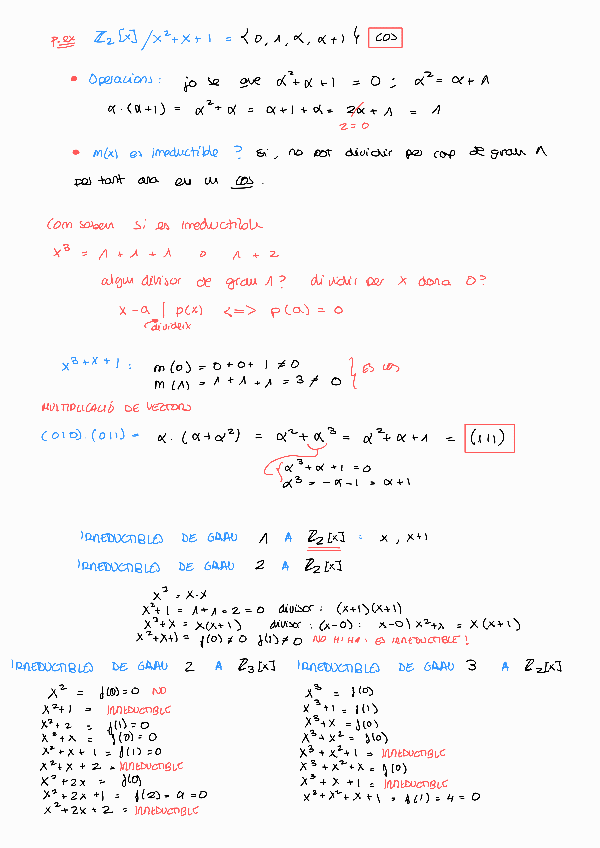 p.ex ℤ₂[x]/x²+x+1 = {0, 1, α, α+1} COS
• Operacions: jo se que α²+α+1 = 0 : α² = α+1
α·(α+1) = α²+α = α+1+α = 2α+1 = 1
2=0
• m(x) es irreductible ? si, no pot dividir per cap de grau 1
per tant ara es un cos.
Com saben si es irreductible
x³ = 1+1+1 o 1+2
algun divisor de grau 1? dividir per x dona 0?
x-a | p(x) <=> p(a) = 0
divideix
x³+x+1: m(0) = 0+0+1 ≠ 0
m(1) = 1+1+1 = 3 ≠ 0
} ES COS
MULTIPLICACIÓ DE VECTORS
(010)·(011) = α·(α+α²) = α²+α³ = α²+α+1 = (111)
α³+α+1 = 0
α³ = -α-1 = α+1
IRREDUCTIBLES DE GRAU 1 A ℤ₂[x] : x, x+1
IRREDUCTIBLES DE GRAU 2 A ℤ₂[x]
x² = x·x
x²+1 = 1+1=2=0 divisor: (x+1)(x+1)
x²+x = x(x+1) divisor: (x-0): x-0) x²+x = x(x+1)
x²+x+1 = f(0)≠0 f(1)≠0 NO HI HA: ES IRREDUCTIBLE!
IRREDUCTIBLES DE GRAU 2 A ℤ₃[x]
x² = f(0)=0 NO
x²+1 = IRREDUCTIBLE
x²+2 = f(1)=0
x²+x = f(0)=0
x²+x+1 = f(1)=0
x²+x+2 = IRREDUCTIBLE
x²+2x = f(0)
x²+2x+1 = f(2)=9=0
x²+2x+2 = IRREDUCTIBLE
IRREDUCTIBLES DE GRAU 3 A ℤ₂[x]
x³ = f(0)
x³+1 = f(1)
x³+x = f(0)
x³+x² = f(0)
x³+x²+1 = IRREDUCTIBLE
x³+x²+x = f(0)
x³+x+1 = IRREDUCTIBLE
x³+x²+x+1 = f(1)=4=0